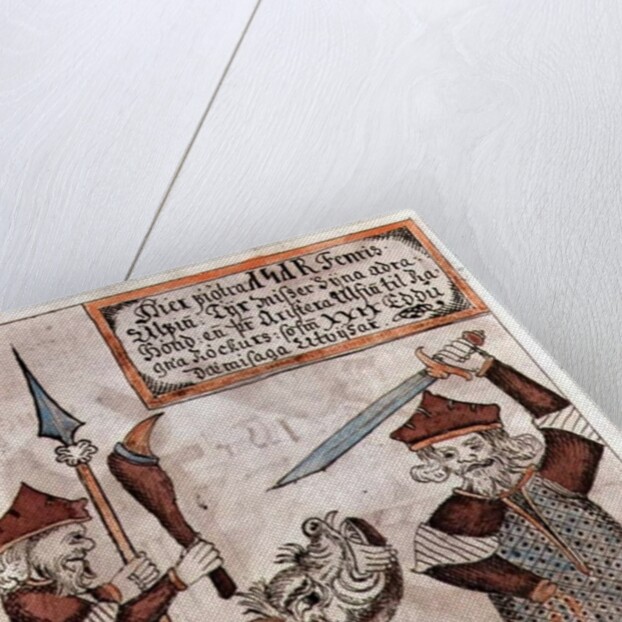 Hier piötra ASAR Fenris.
Ulfin. Tyr misser Sijna adra
Hönd. en hr Aristera Ulfin til Ra
gna röckurs. sosm XXII Eddu
Dæmisaga Utvijsar